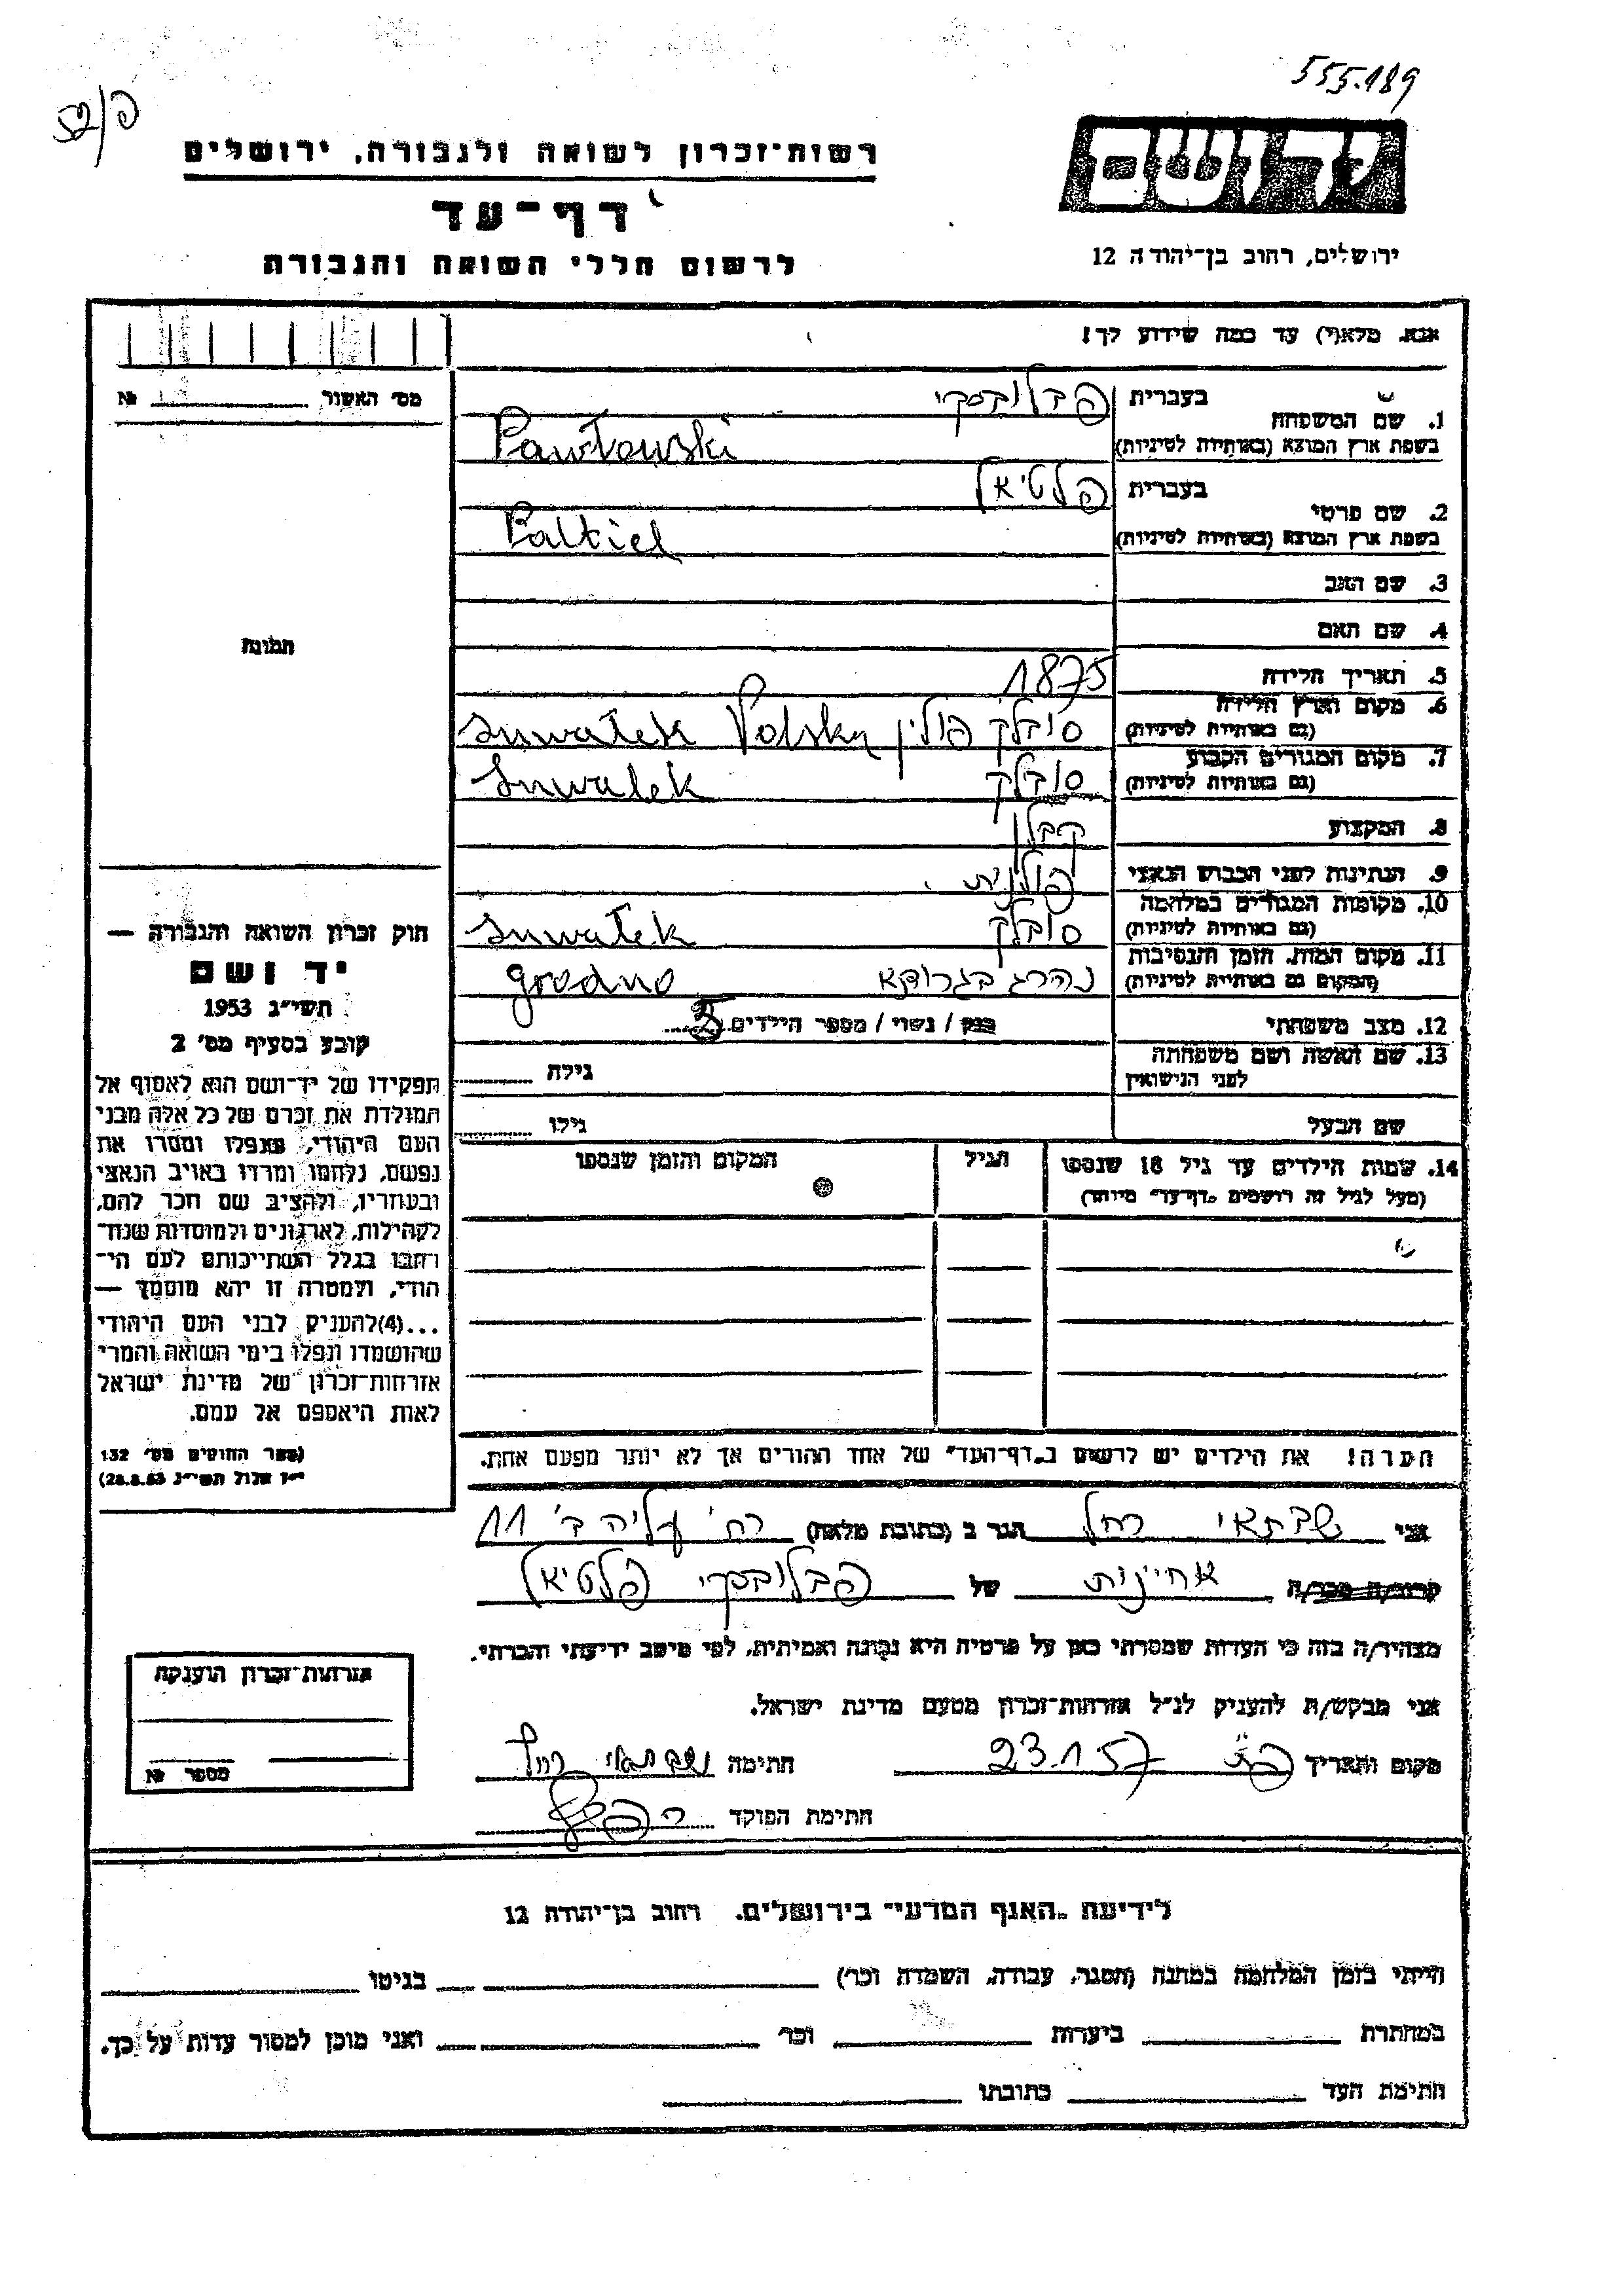 555.189
פ/52
יד ושם
רשות־זכרון לשואה ולגבורה, ירושלים
דף־עד
לרשום חללי השואה והגבורה
ירושלים, רחוב בן־יהודה 12
אנא, מלא(י) עד כמה שידוע לך!
מס׳ האשור № 
בעברית פבלובסקי
1. שם המשפחה
בשפת ארץ המוצא (באותיות לטיניות) Pawłowski
בעברית פלטיאל
2. שם פרטי
בשפת ארץ המוצא (באותיות לטיניות) Paltiel
3. שם האב
4. שם האם
תמונה
5. תאריך הלידה 1875
6. מקום וארץ הלידה
(גם באותיות לטיניות) סובלק פולין Suwałek Polska
7. מקום המגורים הקבוע
(גם באותיות לטיניות) סובלק Suwalek
8. המקצוע קבלן
9. הנתינות לפני הכבוש הנאצי פולנית.
10. מקומות המגורים במלחמה
(גם באותיות לטיניות) סובלק Suwałek
11. מקום המות, הזמן והנסיבות
(המקום גם באותיות לטיניות) נהרג בגרודנא grodno
12. מצב משפחתי רווק / נשוי / מספר הילדים 5
13. שם האשה ושם משפחתה
לפני הנישואין גילה
שם הבעל גילו
14. שמות הילדים עד גיל 18 שנספו הגיל המקום והזמן שנספו
(מעל לגיל זה רושמים „דף־עד״ מיוחד)
חוק זכרון השואה והגבורה —
יד ושם
תשי״ג 1953
קובע בסעיף מס׳ 2
תפקידו של יד־ושם הוא לאסוף אל
המולדת את זכרם של כל אלה מבני
העם היהודי, שנפלו ומסרו את
נפשם, נלחמו ומרדו באויב הנאצי
ובעוזריו, ולהציב שם וזכר להם,
לקהילות, לארגונים ולמוסדות שנח־
רבו בגלל השתייכותם לעם הי־
הודי, ולמטרה זו יהא מוסמך —
...(4)להעניק לבני העם היהודי
שהושמדו ונפלו בימי השואה והמרי
אזרחות־זכרון של מדינת ישראל
לאות היאספם אל עמם.
(ספר החוקים מס׳ 132
י״ז אלול תשי״ג 28.8.53)
הערה! את הילדים יש לרשום ב„דף־העד״ של אחד ההורים אך לא יותר מפעם אחת.
אני שבתאי רחל הגר ב (כתובת מלאה) רח׳ עליה ב׳ 11
קרוב/ה מכר/ה אחיינות של פבלובסקי פלטיאל
מצהיר/ה בזה כי העדות שמסרתי כאן על פרטיה היא נכונה ואמיתית, לפי מיטב ידיעתי והכרתי.
אני מבקש/ת להעניק לנ״ל אזרחות־זכרון מטעם מדינת ישראל.
מקום ותאריך 23.1.57 חתימה שבתאי רחל
חתימת הפוקד
אזרחות־זכרון הוענקה
מספר №
לידיעת „האגף המדעי״ בירושלים. רחוב בן־יהודה 12
הייתי בזמן המלחמה במחנה (הסגר, עבודה, השמדה וכו׳) בגיטו
במחתרת ביערות וכו׳ ואני מוכן למסור עדות על כך.
חתימת העד כתובתו